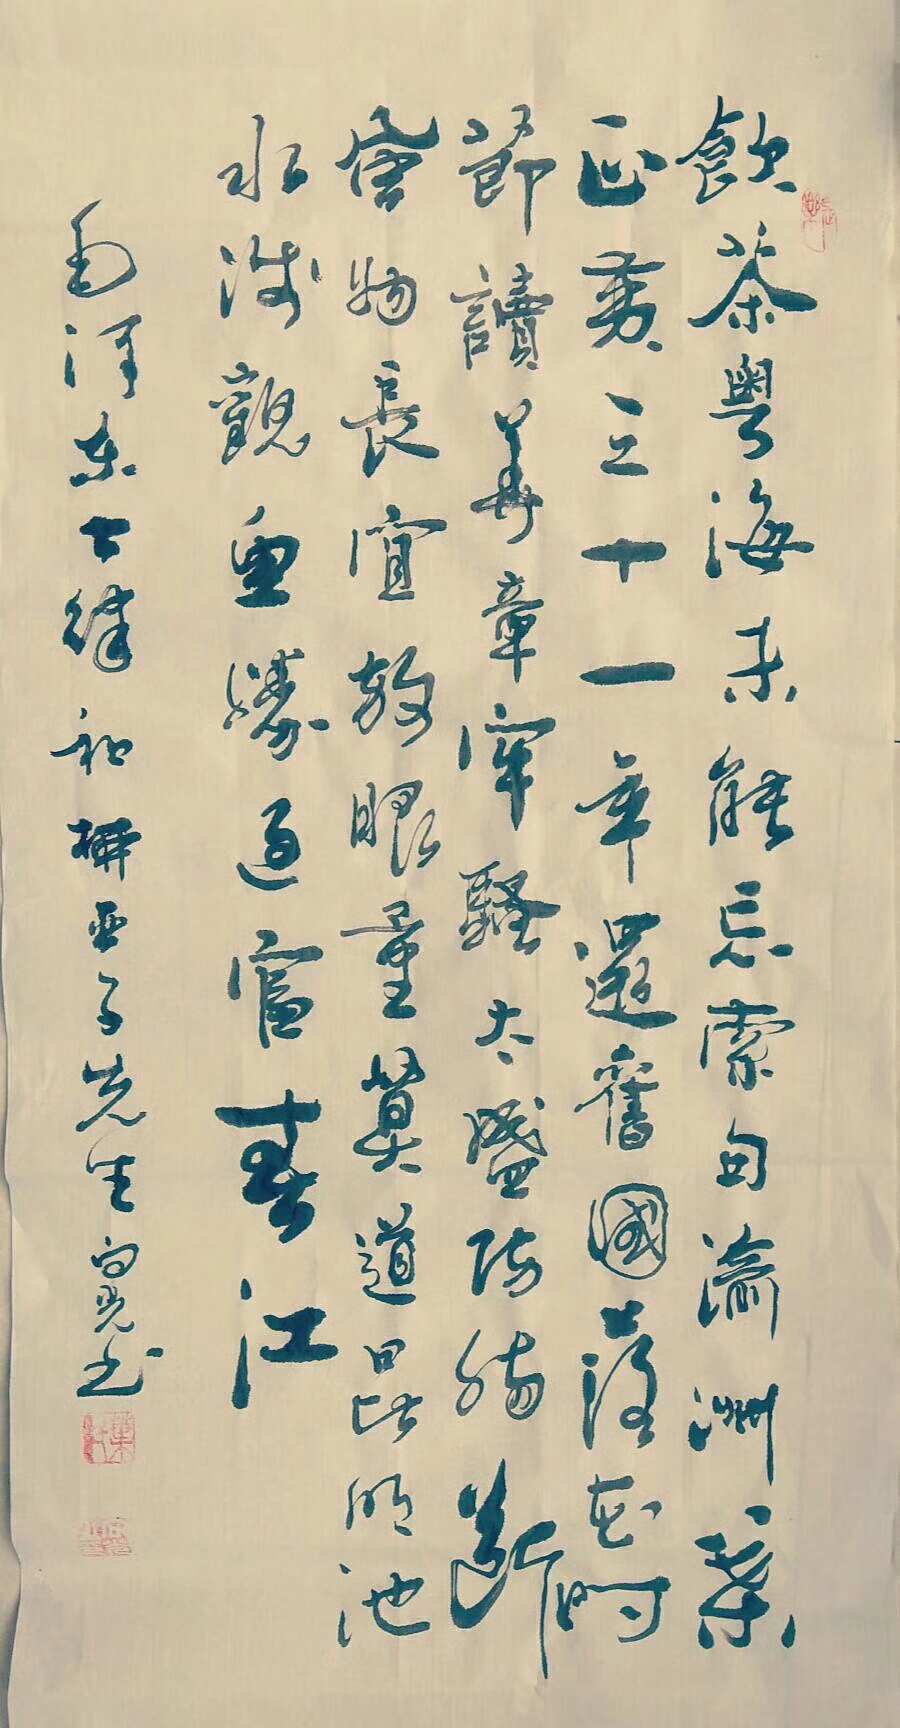 飲茶粵海未能忘索句渝洲葉
正黃三十一年還舊國落花時
節讀華章牢騷太盛防腸斷
風物長宜放眼量莫道昆明池
水淺觀魚勝過富春江
毛澤東七律和柳亞子先生 书